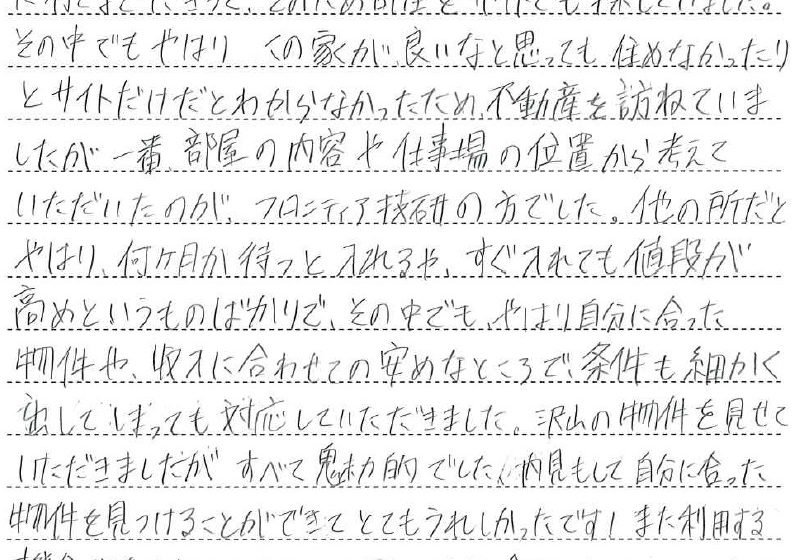 その中でもやはり くの家が、良いなと思っても住めなかったり
とサイトだけだとわからなかったため、不動産を訪ねていま
したが一番、部屋の内容や仕事場の位置から考えて
いただいたのが、フロンティア技研の方でした。他の所だと
やはり、何ヶ月か待つと入れるや、すぐ入れても値段が
高めというものばかりで、その中でも、やはり自分に合った
物件や、収入に合わせての安めなところで、条件も細かく
出してしまっても対応していただきました。沢山の物件を見せて
いただきましたがすべて魅力的でした。内見もして自分に合った
物件を見つけることができてとてもうれしかったです!また利用する